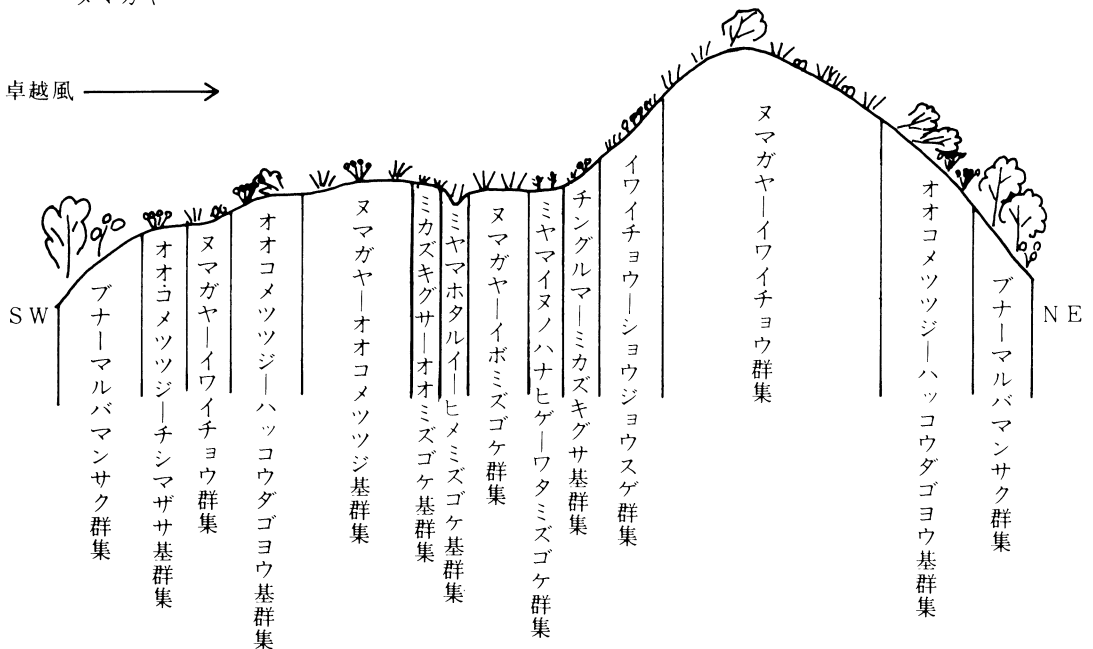 卓越風
SW
NE
ブナーマルバマンサク群集
オオコメツツジーチシマザサ基群集
ヌマガヤーイワイチョウ群集
オオコメツツジーハッコウダゴヨウ基群集
ヌマガヤーオオコメツツジ基群集
ミカズキグサーオオミズゴケ基群集
ミヤマホタルイーヒメミズゴケ基群集
ヌマガヤーイボミズゴケ群集
ミヤマイヌノハナヒゲーワタミズゴケ群集
チングルマーミカズキグサ基群集
イワイチョウーショウジョウスゲ群集
ヌマガヤーイワイチョウ群集
オオコメツツジーハッコウダゴヨウ基群集
ブナーマルバマンサク群集